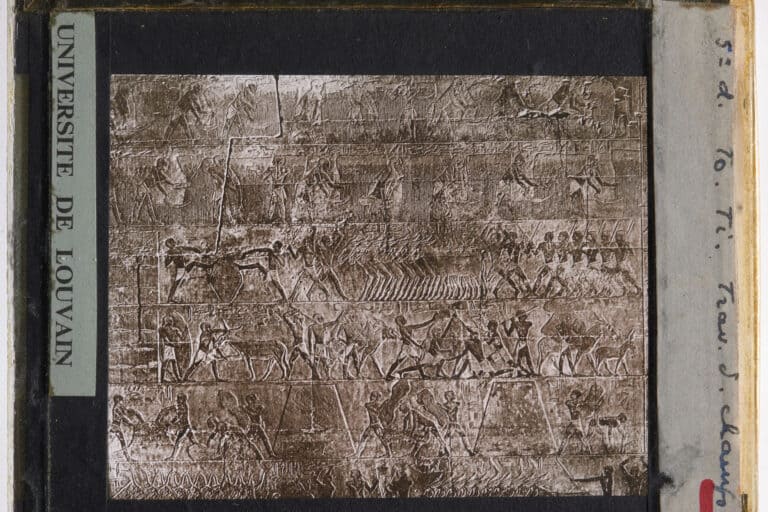 UNIVERSITE DE LOUVAIN
5e d. To. Ti. Trav. d. champs